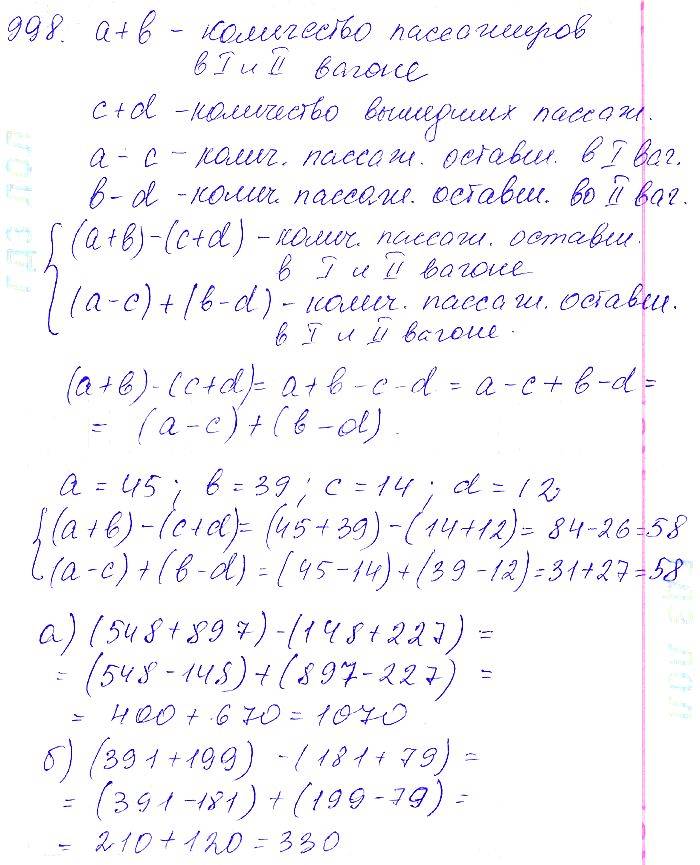 998. a+b – количество пассажиров
в I и II вагоне
c+d – количество вышедших пассаж.
a – c – колич. пассаж. оставш. в I ваг.
b–d – колич. пассаж. оставш. во II ваг.
(a+b)–(c+d) – колич. пассаж. оставш.
в I и II вагоне
(a–c)+(b–d) – колич. пассаж. оставш.
в I и II вагоне.
(a+b)–(c+d)= a+b–c–d = a–c+b–d =
= (a–c)+(b–d).
a = 45; b = 39; c = 14; d = 12
(a+b)–(c+d)= (45+39)–(14+12)= 84–26=58
(a–c)+(b–d) = (45–14)+(39–12)=31+27=58
а) (548+897)–(148+227) =
= (548–148)+(897–227) =
= 400+670=1070
б) (391+199) –(181+79) =
= (391–181)+(199–79)=
= 210+120=330